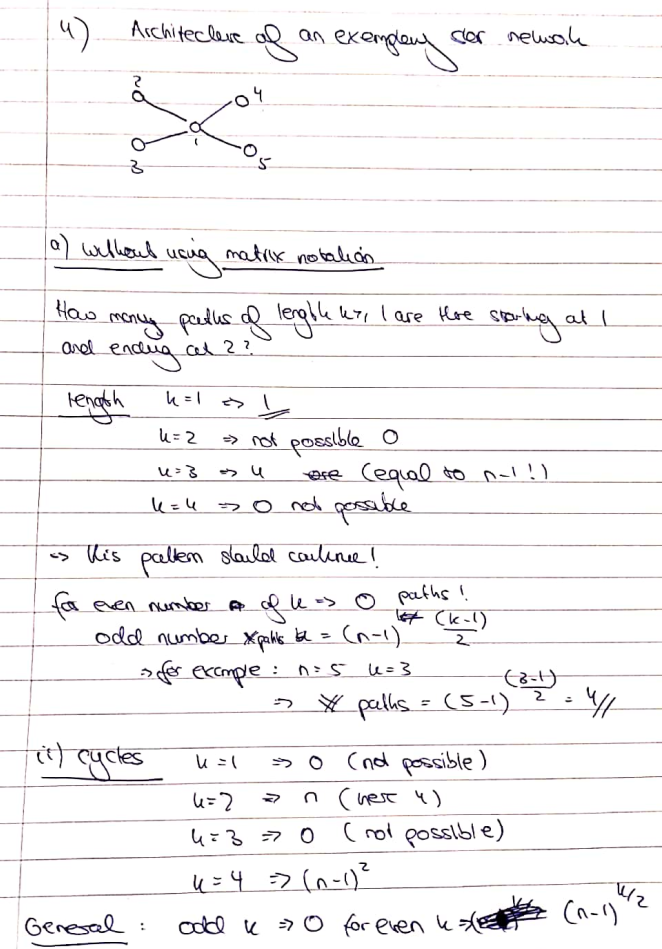 4) Architecture of an exemplary star network
2
4
1
3
5
a) without using matrix notation
How many paths of length k≥1 are there starting at 1
and ending at 2?
length k=1 => 1
k=2 => not possible 0
k=3 => 4 (equal to n-1!)
k=4 => 0 not possible
=> this pattern should continue!
for even number of k => 0 paths!
odd number paths = (n-1)^((k-1)/2)
=> for example: n=5 k=3
=> paths = (5-1)^((3-1)/2) = 4//
ii) cycles k=1 => 0 (not possible)
k=2 => n (here 4)
k=3 => 0 (not possible)
k=4 => (n-1)^2
General: odd k => 0 for even k => (n-1)^(k/2)